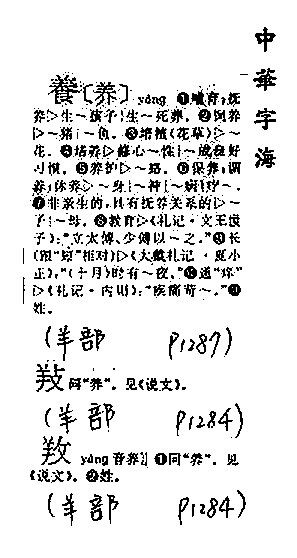 中華字海
養〔养〕 yǎng ❶养育；抚
养▷生~孩子|生~死葬。❷饲养
▷~猪|~鱼。❸培植（花草）▷~
花。❹培养▷修心~性|~成良好
习惯。❺养护▷~路。❻保养；调
养；休养▷~身|~神|~病|疗~。
❼非亲生的，具有抚养关系的▷~
子|~母。❽教育▷《礼记·文王世
子》：“立太傅、少傅以~之。”❾长
（跟“短”相对）▷《大戴礼记·夏小
正》：“（十月）时有~夜。”❿通“痒”
▷《礼记·内则》：“疾痛苛~。”⓫
姓。
（羊部 P1287）
𢼝同“养”。见《说文》。
（羊部 P1284）
羪 yǎng音养 ❶同“养”。见
《说文》。❷姓。
（羊部 P1284）